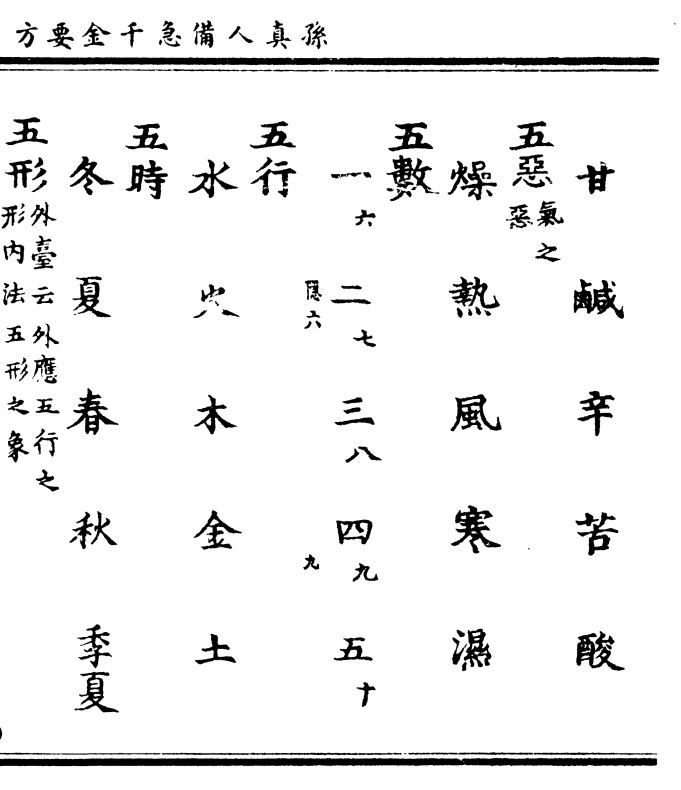 孫真人備急千金要方
甘 鹹 辛 苦 酸
五惡 氣之惡
燥 熱 風 寒 濕
五數
一六 二七 三八 四九 五十
隱六 九
五行
水 火 木 金 土
五時
冬 夏 春 秋 季夏
五形 外臺云外應五行之形內法五形之象